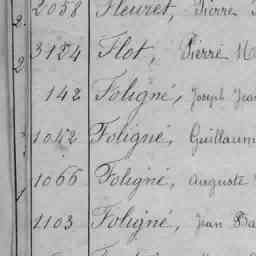 2058 Fleuret, Pierre
3124 Flot, Pierre
142 Foligné, Joseph Jean
1042 Foligné, Guillaum
1066 Foligné, Auguste
1103 Foligné, Jean Ba